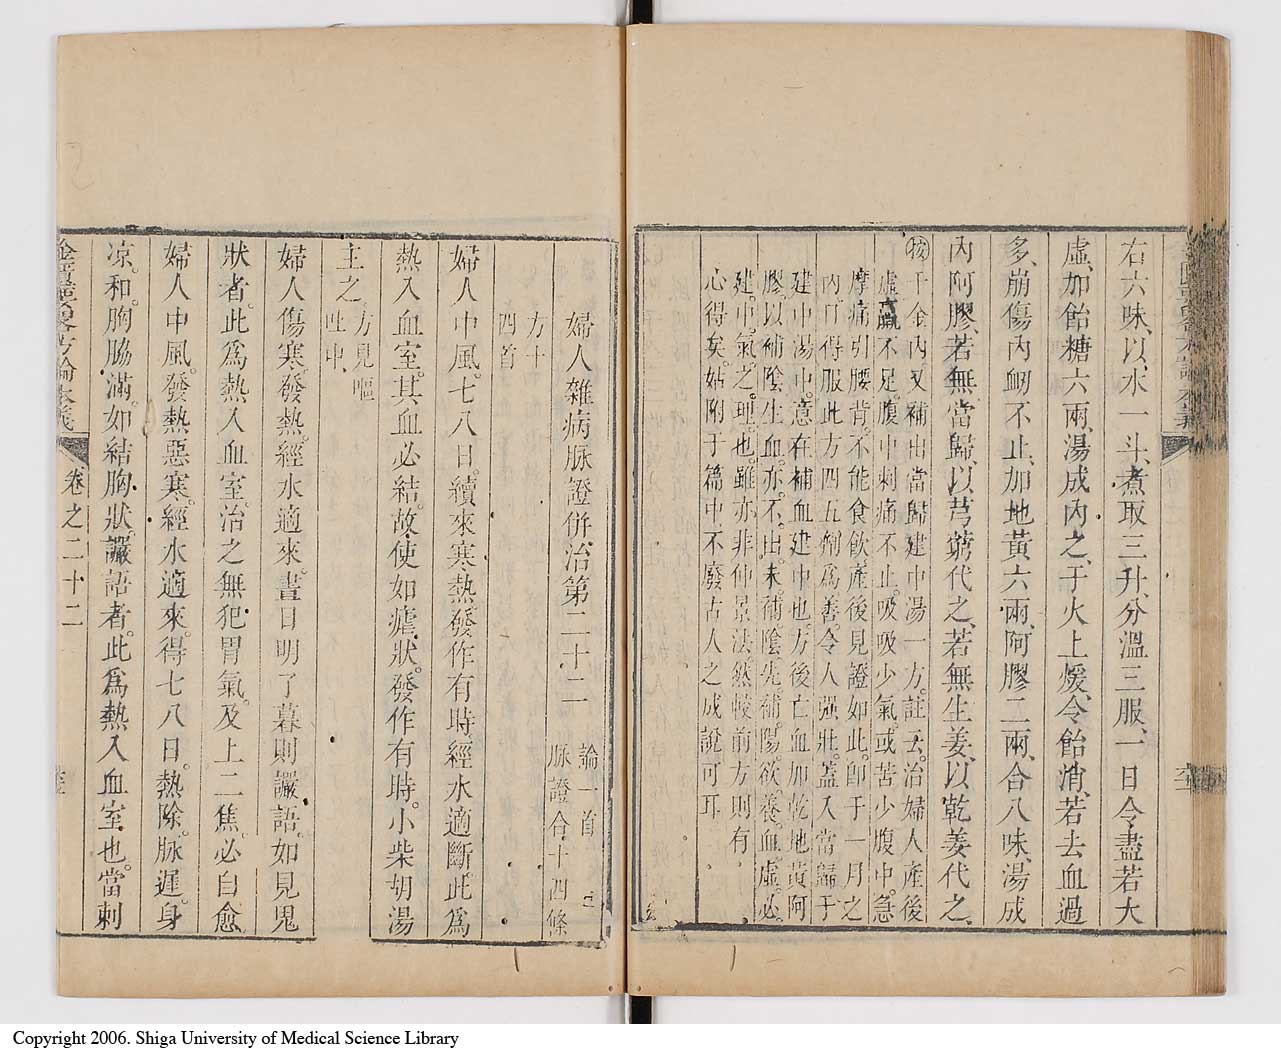 右六味、以水一斗、煮取三升、分溫三服、一日令盡若大
虛、加飴糖六兩、湯成內之、于火上煖、令飴消、若去血過
多、崩傷內衂不止、加地黃六兩、阿膠二兩、合八味、湯成
內阿膠、若無當歸、以芎藭代之、若無生姜、以乾姜代之、
按千金內又補出當歸建中湯一方。註云。治婦人產後
虛羸不足。腹中刺痛不止。吸吸少氣。或苦少腹中。急
摩痛引腰背。不能食飲。產後見證如此。卽于一月之
內日得服此方四五劑爲善。令人强壯。蓋入當歸于
建中湯中。意在補血建中也。方後亡血加乾地黃阿
膠。以補陰生血。亦不出未補陰先補陽。欲養血虛。必
建中。氣之理也。雖亦非仲景法。然較前方則有
心得矣。姑附于篇中不廢古人之成說可耳
婦人雜病脉證併治第二十二
論一首
脉證合十四條
方十
四首
婦人中風。七八日。續來寒熱。發作有時。經水適斷。此爲
熱入血室。其血必結。故使如瘧狀。發作有時。小柴胡湯
主之。
方見嘔
吐中
婦人傷寒。發熱。經水適來。晝日明了。暮則讝語。如見鬼
狀者。此爲熱入血室。治之無犯胃氣。及上二焦。必自愈
婦人中風。發熱惡寒。經水適來。得七八日。熱除。脉遲。身
凉和。胸脇滿。如結胸狀。讝語者。此爲熱入血室也。當刺
金匱要略方論本義
卷之二十二